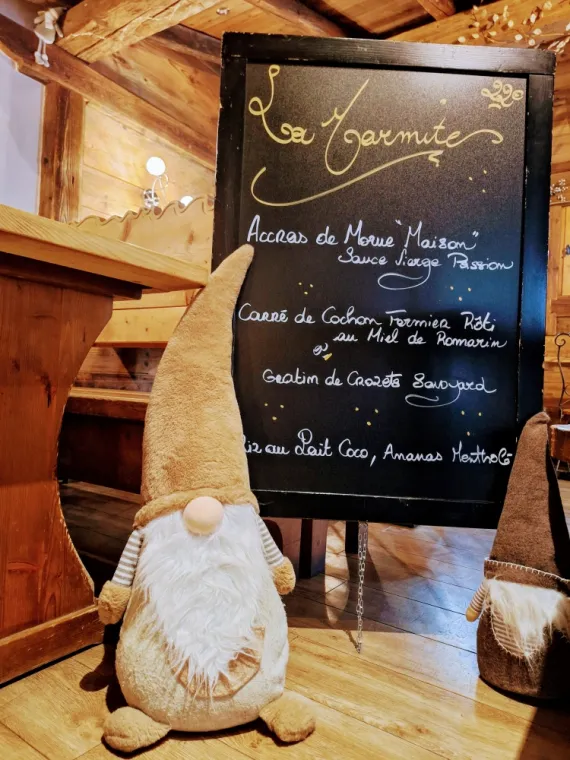 La Marmite
22€
Accras de Morue "Maison"
Sauce Vierge Passion
Carré de Cochon Fermier Rôti
au Miel de Romarin
Gratin de Crozets Savoyard
Riz au Lait Coco, Ananas Mentholé